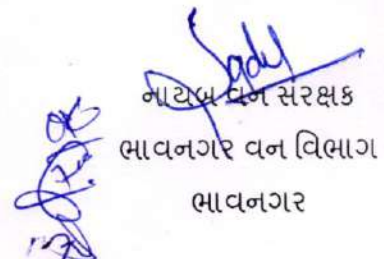 નાયબ વન સંરક્ષક
ભાવનગર વન વિભાગ
ભાવનગર